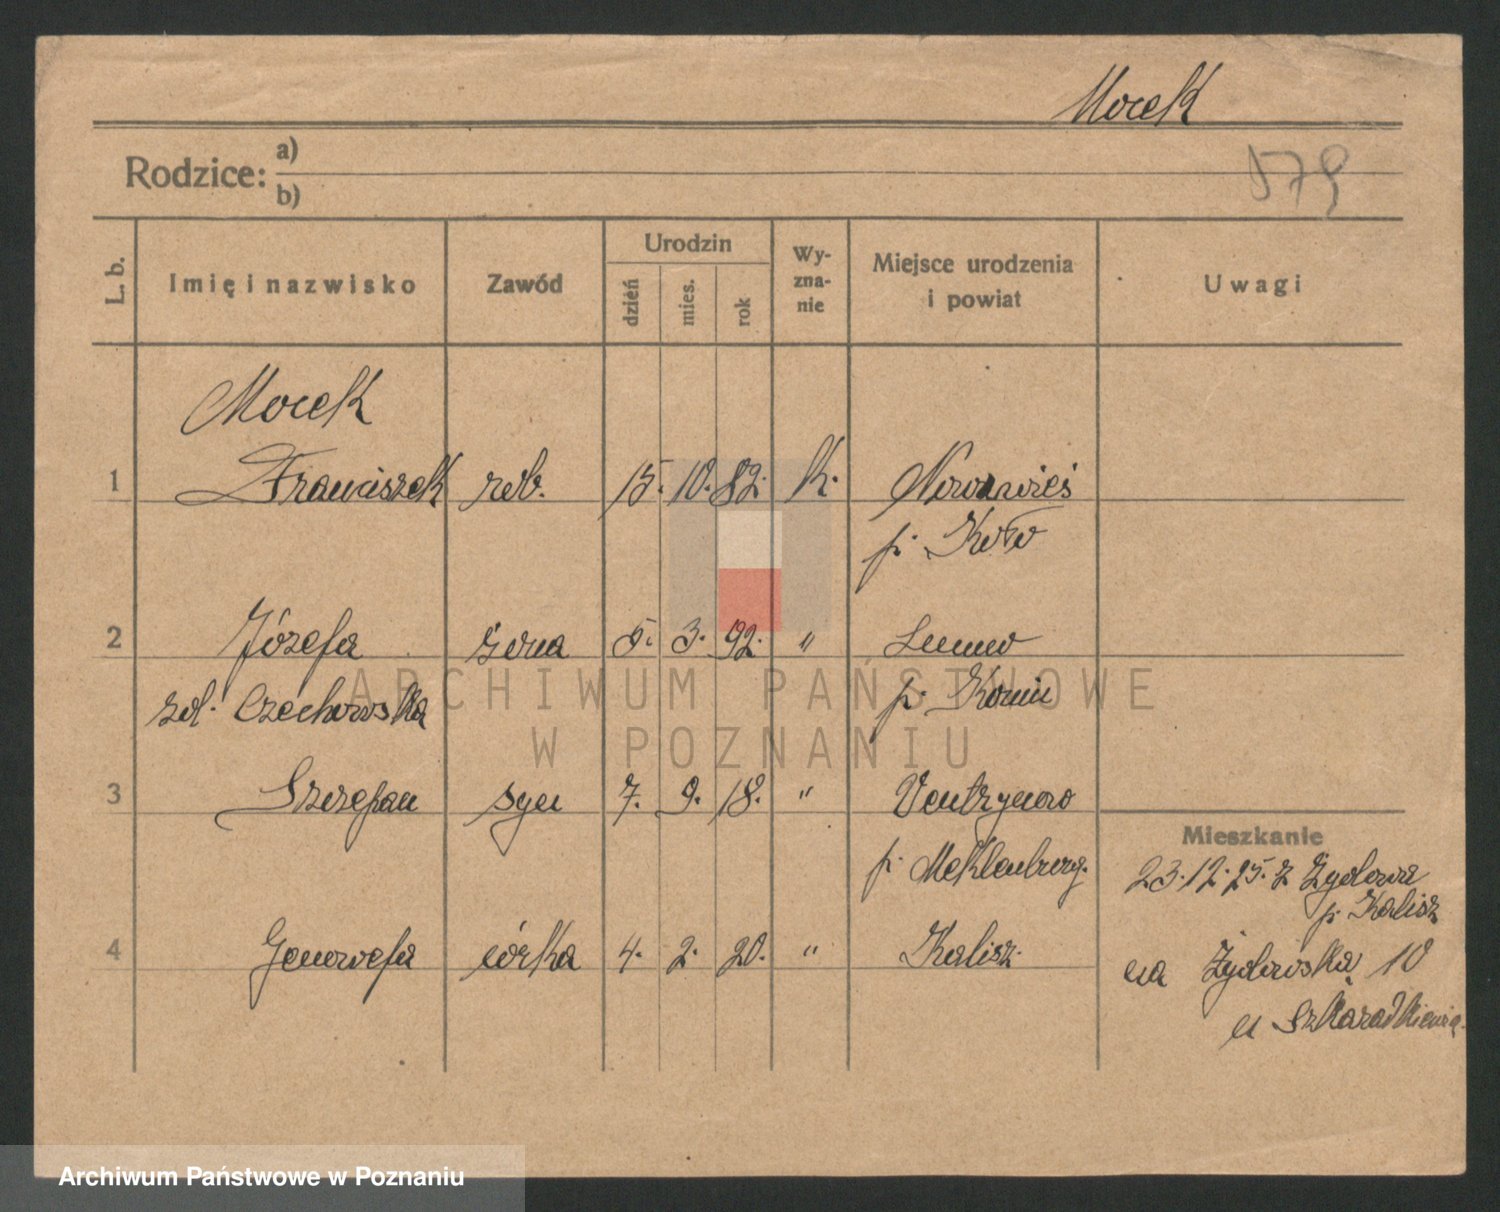 Morek
Rodzice: a)
b)
579
L. b.
Imię i nazwisko
Zawód
Urodzin
dzień
mies.
rok
Wy-
zna-
nie
Miejsce urodzenia
i powiat
Uwagi
Morek
1 Franciszek rob. 15. 10. 82. k. Nowawieś
p. Koło
2 Józefa żona 5. 3. 92. "
p. Konin
zd. Czechowska
3 Szczepan syn 7. 9. 18. "
p. Meklenburg.
Mieszkanie
23.12.25. z Żydowa
p. Kalisz
4 Genowefa córka 4. 2. 20. " Kalisz.
na Żydowską 10
u
ARCHIWUM PAŃSTWOWE
W POZNANIU
Archiwum Państwowe w Poznaniu